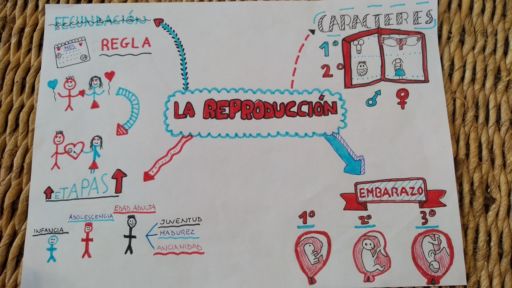 FECUNDACIÓN
REGLA
CARACTERES
1º
2º
LA REPRODUCCIÓN
ETAPAS
INFANCIA
ADOLESCENCIA
EDAD ADULTA
JUVENTUD
MADUREZ
ANCIANIDAD
EMBARAZO
1º 2º 3º